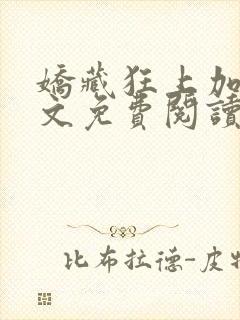 嬌藏狂上加
文免費閱讀
比布拉德-皮特